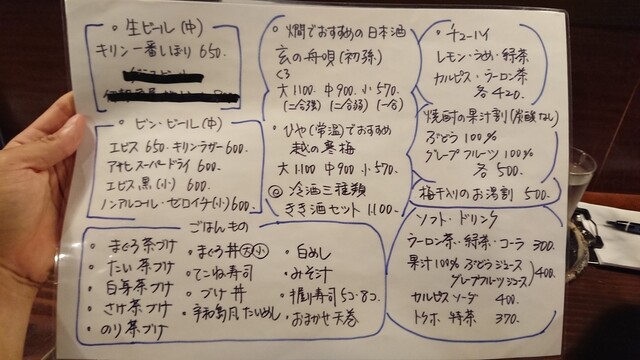 。生ビール(中)
キリン一番しぼり 650.
。ビン・ビール(中)
エビス 650・キリンラガー600.
アサヒスーパードライ 600.
エビス黒(小) 600.
ノンアルコール・ゼロイチ(小)600
。燗でおすすめの日本酒
玄の舟唄(初孫)
くろ
大1100 中900 小570.
(二合強)(二合弱)(一合)
。ひや(常温)でおすすめ
越の寒梅
大1100 中900 小570.
◎冷酒三種類
きき酒セット 1100.
。チューハイ
レモン・うめ・緑茶
カルピス・ウーロン茶
各420.
焼酎の果汁割(炭酸なし)
ぶどう100%
グレープフルーツ100%
各500.
梅干入りのお湯割 500.
ソフト・ドリンク
ウーロン茶・緑茶・コーラ 300.
果汁100% ぶどうジュース
グレープフルーツジュース 400.
カルピスソーダ 400.
トクホ 特茶 370.
ごはんもの
・まぐろ茶づけ
・たい茶づけ
・白身茶づけ
・さけ茶づけ
・のり茶づけ
・まぐろ丼 大 小
・てこね寿司
・づけ丼
・宇和島風たいめし
・白めし
・みそ汁
・握り寿司5コ・8コ
・おまかせ太巻